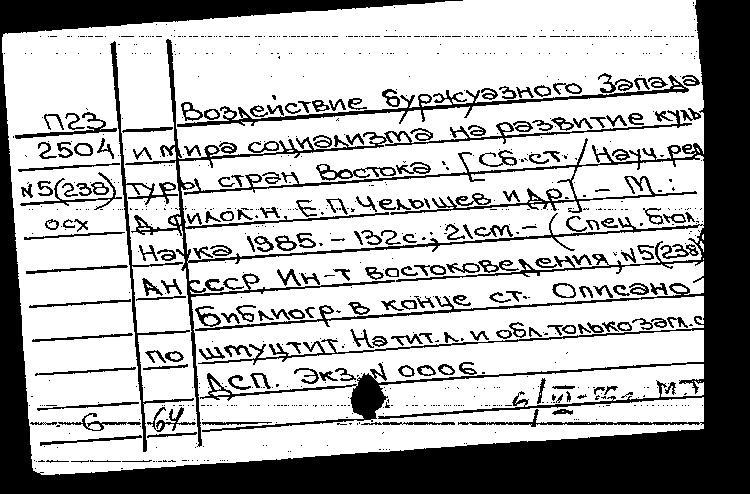 Воздействие буржуазного Запада
П23
2504 и мира социализма на развитие куль-
N5(238) туры стран Востока: [Сб. ст. / Науч. ред.
осх Д. филол. н. Е. П. Челышев и др.]. – М.:
Наука, 1985. – 132 с.; 21 см. – (Спец. бюл.
АН СССР, Ин-т востоковедения; N5(238)
Библиогр. в конце ст. Описано
по шмуцтит. На тит. л. и обл. только загл. с
ДСП. Экз. N 0006.
6 64